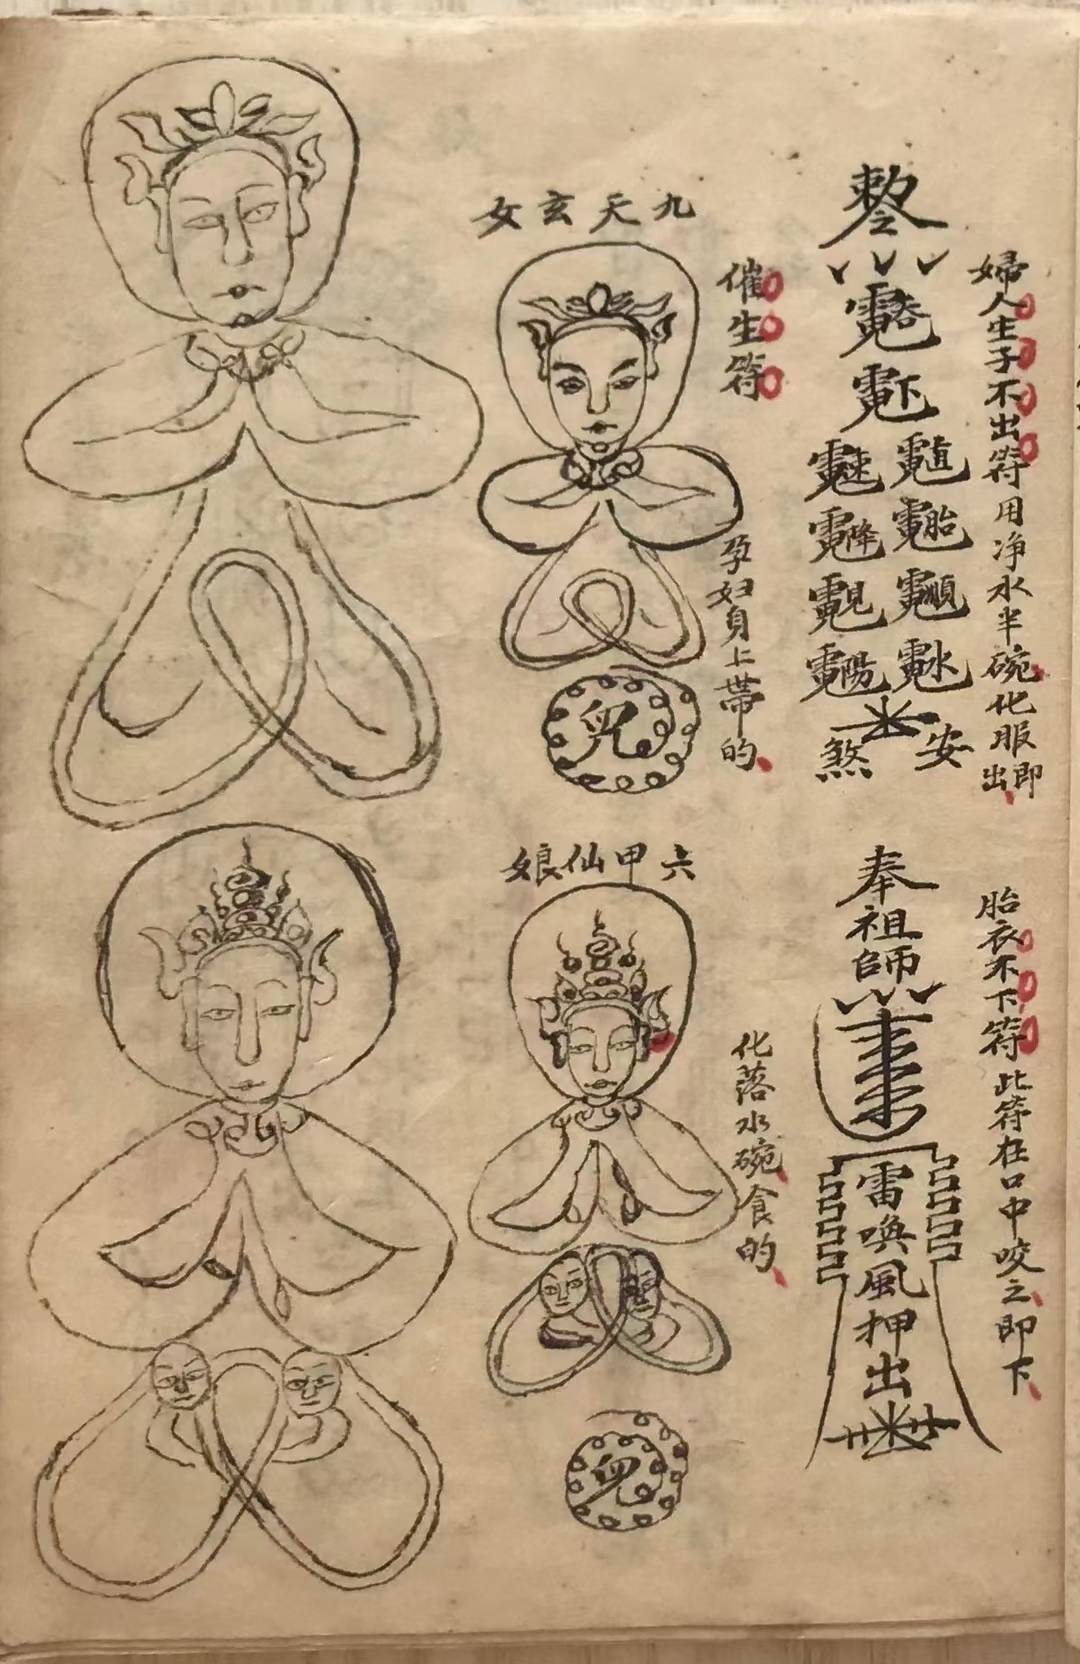 婦人生子不出符用净水半碗化服即出
敕令
煞 安
胎衣不下符此符在口中咬之即下
奉祖師
雷喚風押出
九天玄女
催生符
孕妇身上带的
六甲仙娘
化落水碗食的